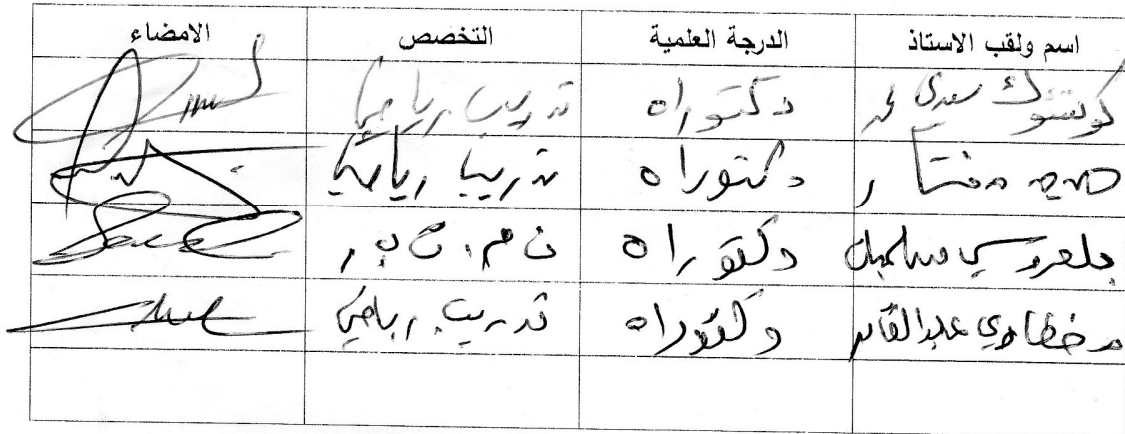 اسم ولقب الاستاذ الدرجة العلمية التخصص الامضاء
كوتشوك سيدي محمد دكتوراه تدريب رياضي
دكتوراه تدريب رياضي
بلعروسي سليمان دكتوراه ن م، ن ب ر
خطاوي عبدالقادر دكتوراه تدريب رياضي